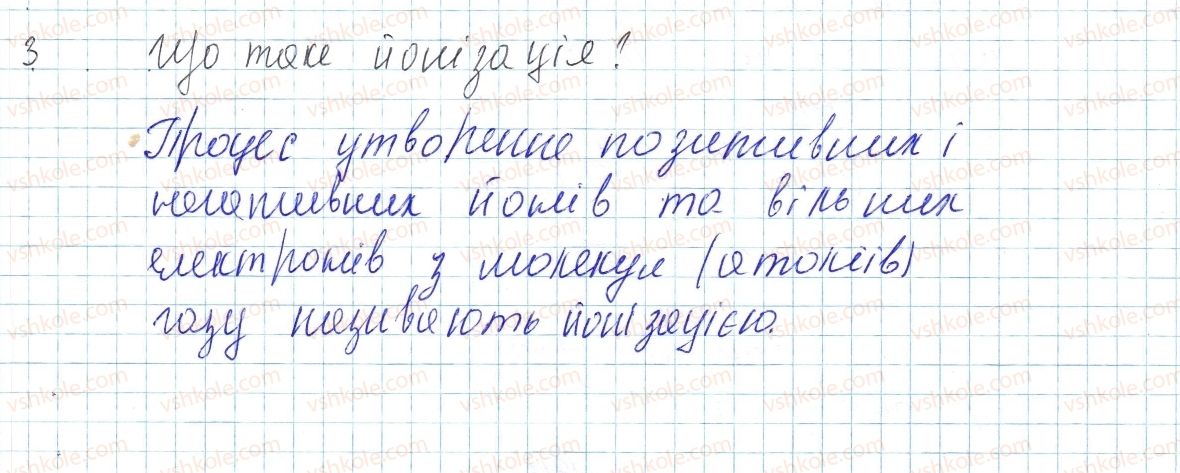 3. Що таке йонізація?
Процес утворення позитивних і
негативних йонів та вільних
електронів з молекул (атомів)
газу називають йонізацією.
vshkole.com